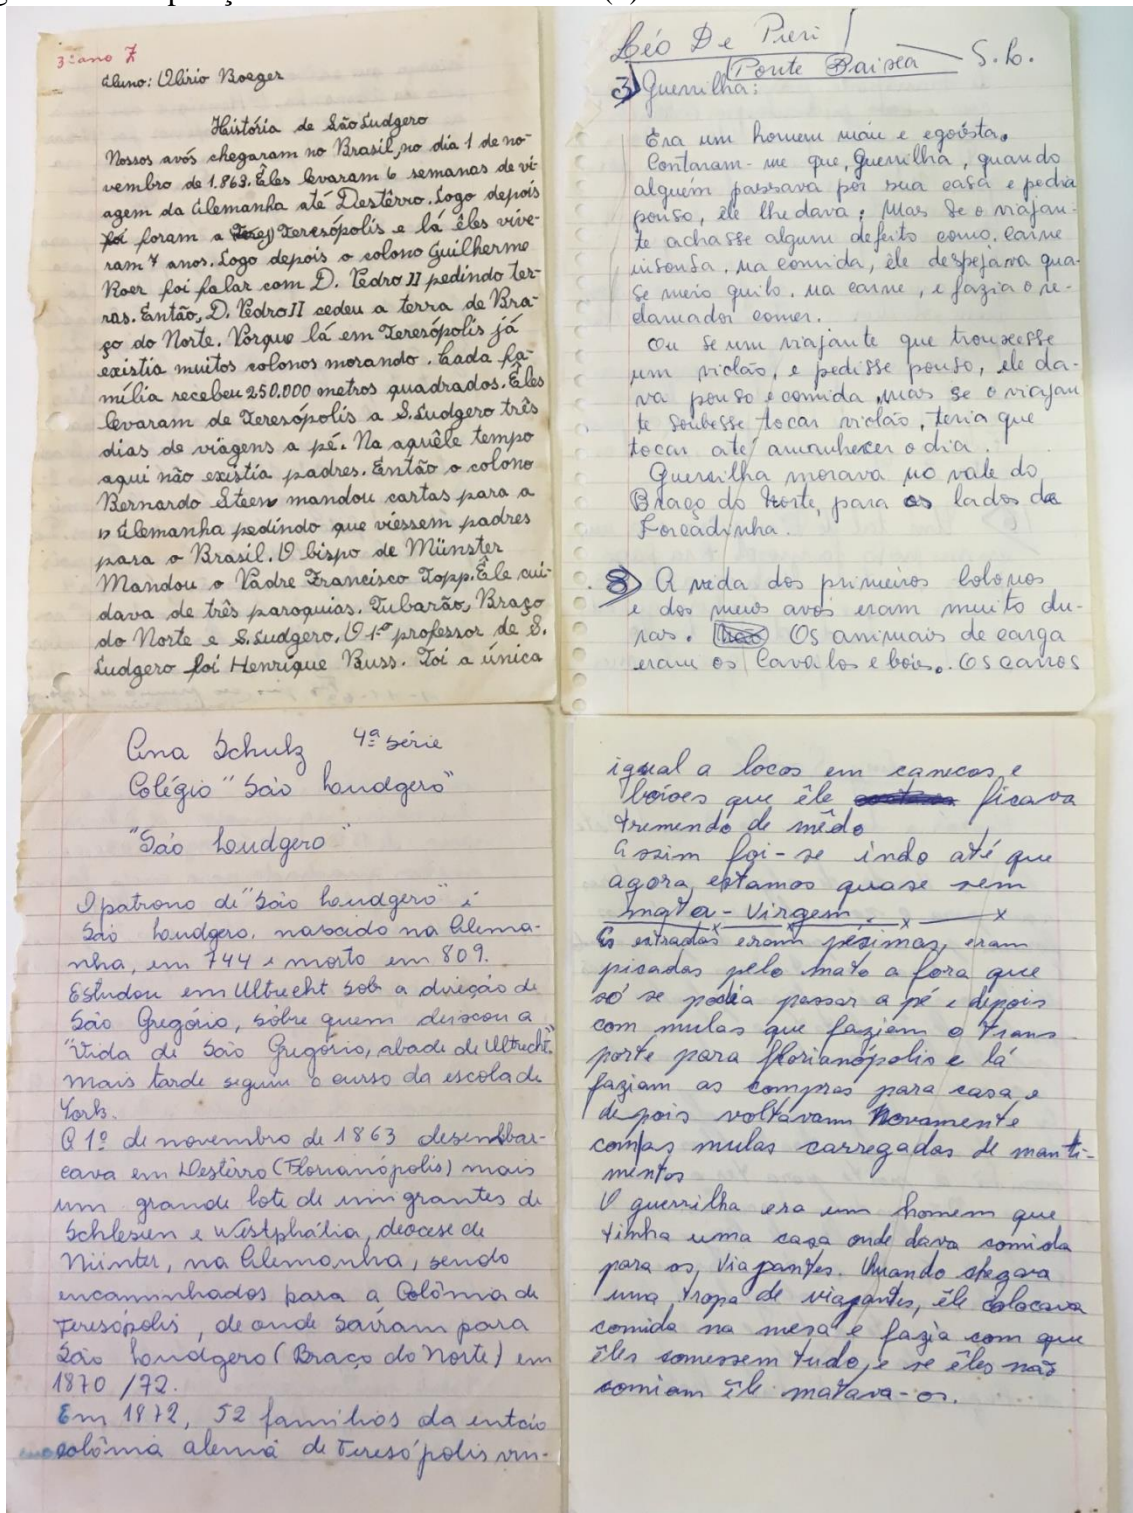 3º ano 7
Aluno: Olírio Boeger
História de São Ludgero
Nossos avós chegaram no Brasil, no dia 1 de no-
vembro de 1.863. Êles levaram 6 semanas de vi-
agem da Alemanha até Destêrro. Logo depois
foi foram a Teresópolis e lá êles vive-
ram 7 anos. Logo depois o colono Guilherme
Roer foi falar com D. Pedro II pedindo ter-
ras. Então, D. Pedro II cedeu a terra de Bra-
ço do Norte. Porque lá em Teresópolis já
existia muitos colonos morando. Cada fa-
mília recebeu 250.000 metros quadrados. Êles
levaram de Teresópolis a S. Ludgero três
dias de viágens a pé. Na aquêle tempo
aqui não existia padres. Então o colono
Bernardo Steen mandou cartas para a
Alemanha pedindo que viessem padres
para o Brasil. O bispo de Münster
Mandou o Padre Francisco Topp. Êle cui-
dava de três paroquias. Tubarão, Braço
do Norte e S. Ludgero. O 1º professor de S.
Ludgero foi Henrique Buss. Foi a única
Léo De Pieri
Ponte Baixa S. L.
3) Guerrilha:
Era um homem máu e egoísta.
Contaram-me que, Guerrilha, quando
alguém passava por sua casa e pedia
pouso, êle lhe dava; Mas se o viajan-
te achasse algum defeito como. Carne
insonsa. na comida, êle despejava qua-
se meio quilo. na carne, e fazia o re-
clamador comer.
Ou se um viajante que trouxesse
um violão, e pedisse pouso, ele da-
va pouso e comida, mas se o viajan
te soubesse tocar violão, teria que
tocar até amanhecer o dia.
Guerrilha morava no vale do
Braço do Norte, para os lados da
Forcadinha.
8) A vida dos primeiros colonos
e dos meus avós eram muito du-
ras. Os animais de carga
eram os Cavalos e bois. Os carros
Ana Schulz 4ª série
Colégio "São Loudgero"
"São Loudgero"
O patrono de "São Loudgero" é
São Loudgero, nascido na Alema-
nha, em 744 e morto em 809.
Estudou em Ultrecht sob a direção de
São Gregório, sôbre quem deixou a
"Vida de São Gregório, abade de Ultrecht."
Mais tarde seguiu o curso da escola de
York.
A 1º de novembro de 1863 desembar-
cava em Destêrro (Florianópolis) mais
um grande lote de imigrantes de
Schlesien e Westphália, diocese de
Münter, na Alemanha, sendo
encaminhados para a Colônia de
Teresópolis, de onde saíram para
São Loudgero (Braço do Norte) em
1870/72.
Em 1872, 52 famílias da então
colônia alemã de Teresópolis vin-
igual a locos em canecos e
boioes que êle ficava
tremendo de mêdo
Assim foi-se indo até que
agora, estamos quase sem
mata-Virgem. x x x
As estradas eram pésimas, eram
picadas pelo mato a fora que
só se podia passar a pé e depois
com mulas que faziam o trans
porte para florianópolis e lá
faziam as compras para casa, e
depois voltávam Novamente
com as mulas carregadas de manti-
mentos
O guerrilha era um homem que
tinha uma casa onde dava comida
para os, viajantes. Quando chegava
uma tropa de viajantes, êle colocava
comida na mesa e fazia com que
êles comessem tudo, e se êles não
comiam êle matava-os.